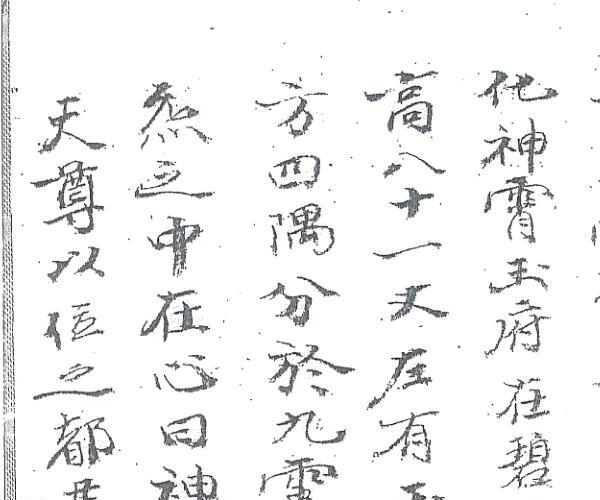 化神霄玉府在碧
高八十一丈左有
方四隅分於九
炁之中在心曰神
天尊以位之都